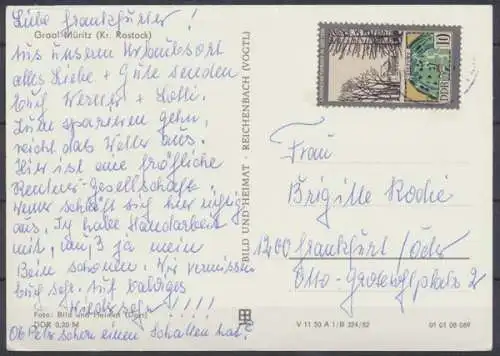 Liebe Frankfurter!
Graal Müritz (Kr. Rostock)
Aus unserm Urlaubsort
alles Liebe + Gute senden
Euch Werner + Lotti.
Zum spazieren gehn,
reicht das Wetter aus.
Hier ist eine fröhliche
Rentner-Gesellschaft.
Werner schläft sich hier richtig
aus. Ich habe Handarbeit
mit, muß ja mein
Bein schonen. Wir vermissen
Euch sehr. Auf baldiges
Wiedersehn!!!!
Foto: Bild und Heimat
DDR 0,20 M
Ob Petr schon einen Schatten hat?
BILD UND HEIMAT · REICHENBACH (VOGTL)
10
DDR
Frau
Brigitte Rodie
1200 Frankfurt/Oder
Otto-Grotewohlplatz 2
V 11 50 A 1/B 324/82
01 01 08 089